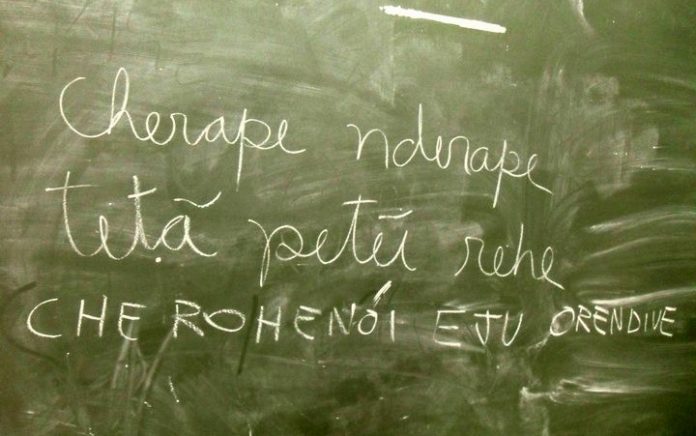 Cherape nderape
tetã peteĩ rehe
CHE ROHENÓI EJU ORENDIVE